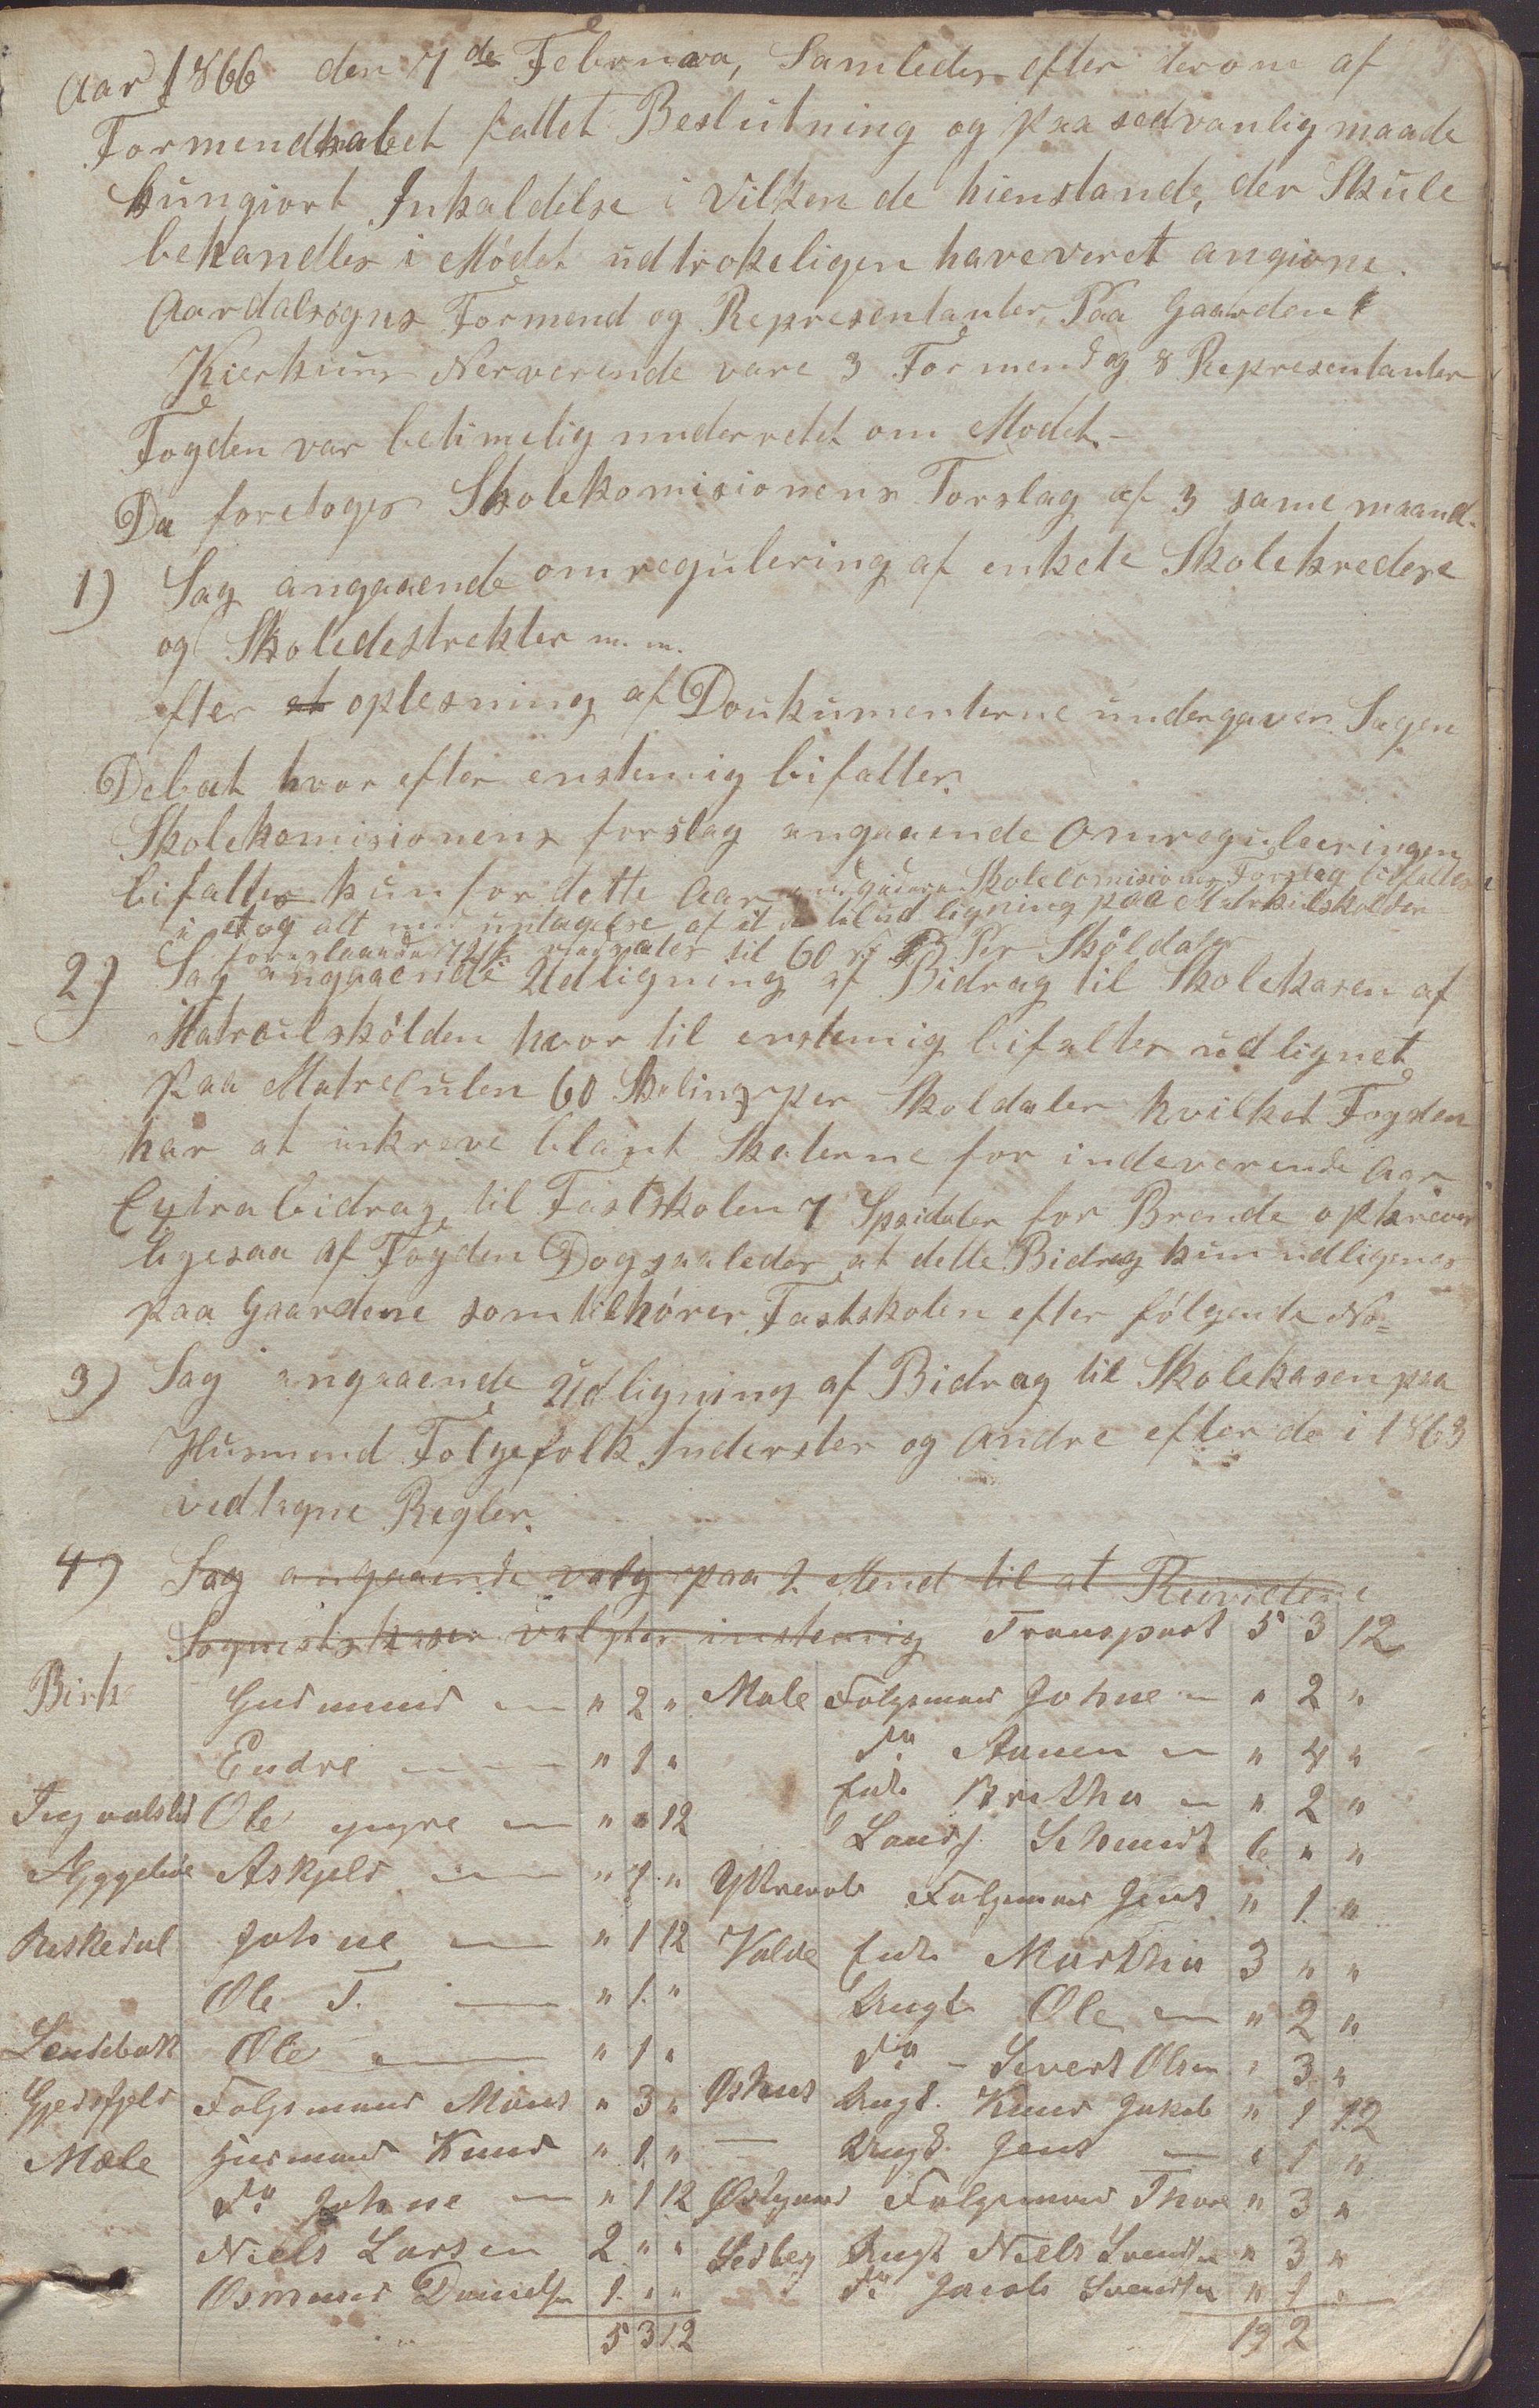 Aar 1866 den 7de Februara, Samledes efter derom af
Formendskabet fattet Beslutning og paa sedvanlig maade
kungiort Inkaldelse i Vilken de hienstande, der Skule
behandles i Mödet udtrokeligen have veret angivne.
Aardalsogns Formend og Representanter, Paa Gaarden
Kierhuus Nerverende vare 3 Formend og 8 Representanter
Fogden var betimelig underretet om Modet.-
Da foretoges Skolekomisionens Forslag af 3 same maaned.
1) Sag angaaende omregulering af enkete Skolekredere
og Skoledestrekter m. m.
fter at oplesning af Doukumenterne undergaven Sagen
Debat hvor efter enstemig bifaltes.
Skolekomisionens forslag angaaende Omreguleeringen
bifaltes kun for dette Aar Skolecomisions Forslag bifaltes
i et og alt med untagelse af at udligning paa Matrikulskolden
forreslaaende 72 til 60 s Per Sköldaler
2) Sag angaaende Udligning af Bidrag til Skolekasen af
Matroulskölden hvor til enstemig bifaltes udlignet
paa Matreculen 60 Skeling per Skoldaler hvilket Fogden
har at inkreve blant Skaterne for indeverende Aar
Extrabidrag til Fastskolen 7 Spsidaler for Brende opkreves
ligesaa af Fogden Dog saaledes at dette Bidrag kun udligenes
paa Gaardene som tilhörer Fastskolen efter fölgende No=
3) Sag angaaende Udligning af Bidrag til Skolekasen paa
Husmend Folgefolk Inderster og Andre efter de i 1863
vedtagne Regler.
4) Sag angaaende valg paa 2 Mend til at Reividere
valgtes instemig Transport 5 3 12
Birke Gudmund — " 2 " Mæle Folgemand Johne — " 2 "
Endre — " 1 " do Aanen — " 4 "
Ingvalstad Ole yngre — " " 12 Enke Brethe — " 2 "
Askjeld — " 1 " Landh. Schmidt 6 " "
Riskedal Johne — " 1 12 Folgemand Jens " 1 "
Ole T. — " 1 " Valde Enke Martha 3 " "
Ungk. Ole — " 2 "
Ole — " 1 " do - Sivert Olsen " 3 "
Gjedsfjeld Folgemand Mons " 3 " Øshus Ungk. Knud Jakob " 1 12
Mæle Husmand Knud " 1 " — Ungk. Jens — " 1 "
do Johne — " 1 12 Østigaard Folgemand Thore " 3 "
Niels Larsen 2 " " Sedberg Ungk Niels Svendsen " 3 "
Osmund Danielsen 1 " " do Jacob Svendsen " 1 "
5 3 12 19 2